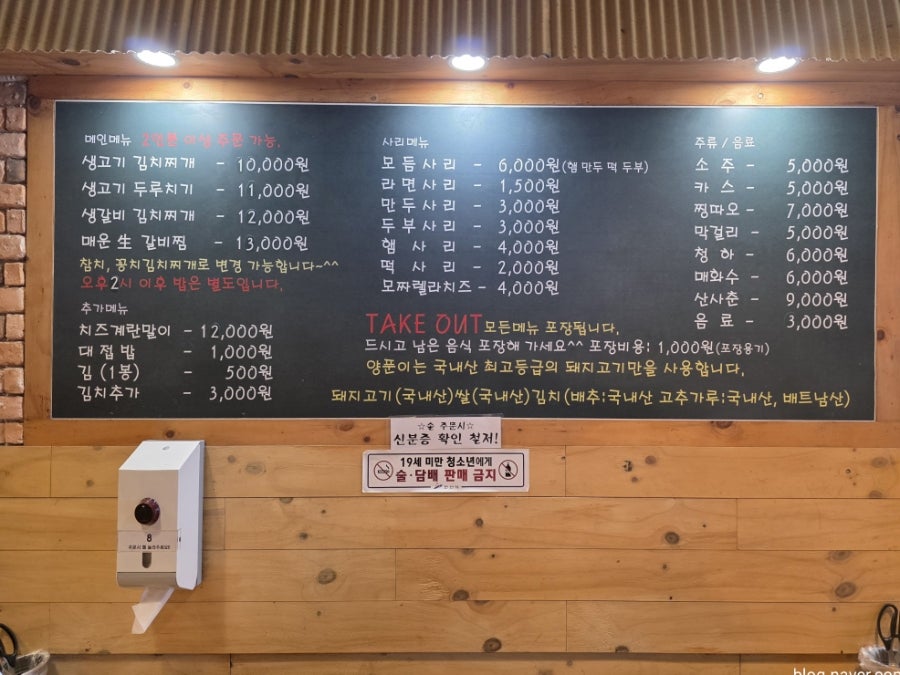 메인메뉴 2인분 이상 주문 가능.
생고기 김치찌개 - 10,000원
생고기 두루치기 - 11,000원
생갈비 김치찌개 - 12,000원
매운 生 갈비찜 - 13,000원
참치, 꽁치김치찌개로 변경 가능합니다~^^
오후2시 이후 밥은 별도입니다.
추가메뉴
치즈계란말이 - 12,000원
대접밥 - 1,000원
김 (1봉) - 500원
김치추가 - 3,000원
사리메뉴
모듬사리 - 6,000원(햄 만두 떡 두부)
라면사리 - 1,500원
만두사리 - 3,000원
두부사리 - 3,000원
햄 사리 - 4,000원
떡 사리 - 2,000원
모짜렐라치즈 - 4,000원
주류 / 음료
소주 - 5,000원
카스 - 5,000원
찡따오 - 7,000원
막걸리 - 5,000원
청하 - 6,000원
매화수 - 6,000원
산사춘 - 9,000원
음료 - 3,000원
TAKE OUT 모든메뉴 포장됩니다.
드시고 남은 음식 포장해 가세요^^ 포장비용: 1,000원(포장용기)
양푼이는 국내산 최고등급의 돼지고기만을 사용합니다.
돼지고기(국내산)쌀(국내산)김치(배추:국내산 고추가루:국내산, 베트남산)
☆술 주문시☆
신분증 확인 철저!
19세 미만 청소년에게
술·담배 판매 금지
8
blog.naver.com